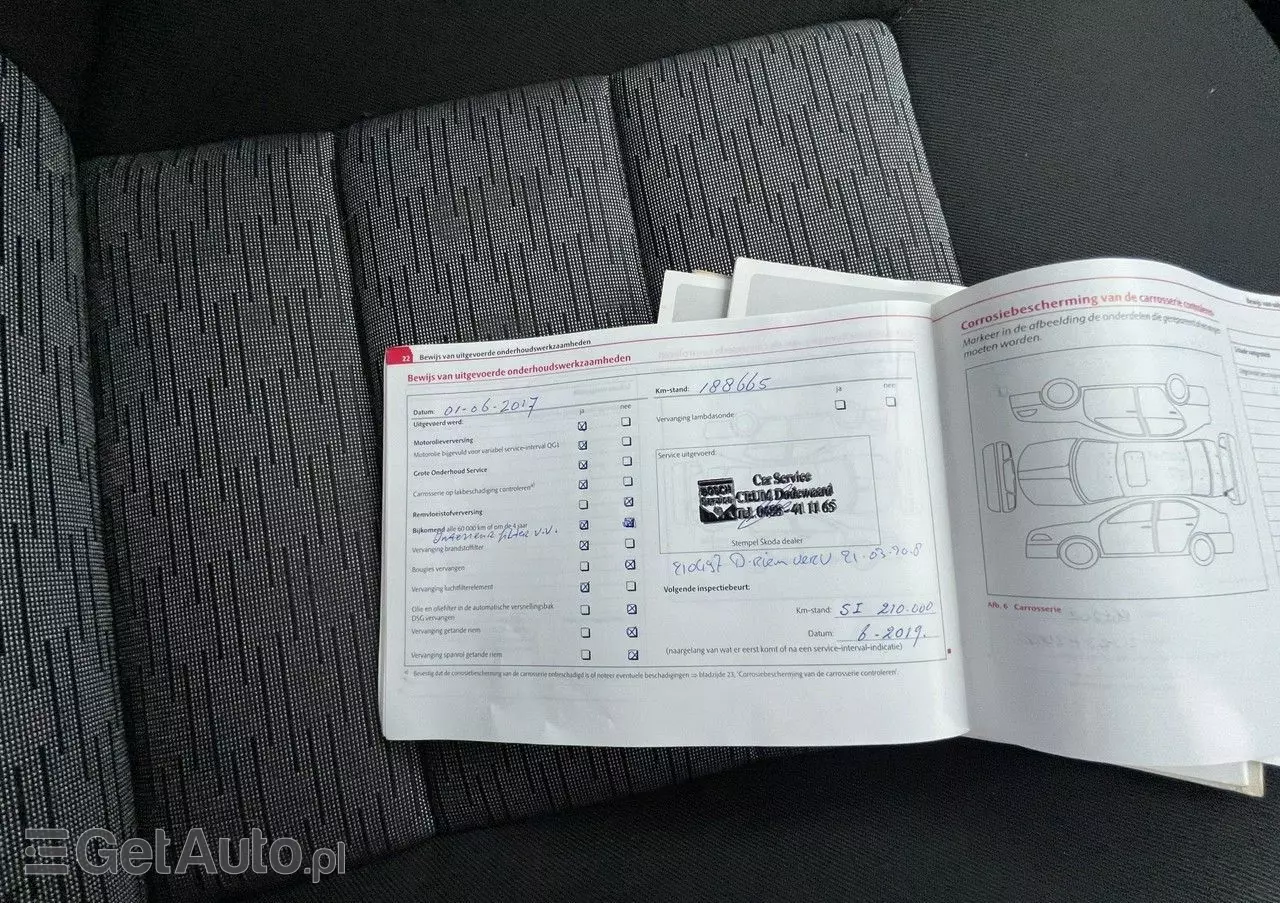 22 Bewijs van uitgevoerde onderhoudswerkzaamheden
Bewijs van uitgevoerde onderhoudswerkzaamheden
Datum: 01-06-2017
Uitgevoerd werd:
ja
nee
Motorolieverversing
Motorolie bijgevuld voor variabel service-interval QG1
Grote Onderhoud Service
Carrosserie op lakbeschadiging controleren
Remvloeistofverversing
Bijkomend alle 60 000 km of om de 4 jaar
Interieur filter V.V.
Vervanging brandstoffilter
Bougies vervangen
Vervanging luchtfilterelement
Olie en oliefilter in de automatische versnellingsbak
DSG vervangen
Vervanging getande riem
Vervanging spanrol getande riem
Km-stand: 188665
ja
nee
Vervanging lambdasonde
Service uitgevoerd:
BOSCH
Service
Car Service
Dodewaard
Tel. 0488 - 41 11 65
Stempel Skoda dealer
D-Riem
Volgende inspectiebeurt:
Km-stand: SI 210.000
Datum: 6-2019.
(naargelang van wat er eerst komt of na een service-interval-indicatie)
Bevestig dat de corrosiebescherming van de carrosserie onbeschadigd is of noteer eventuele beschadigingen ⇒ bladzijde 23, 'Corrosiebescherming van de carrosserie controleren'.
Corrosiebescherming van de carrosserie controleren
Markeer in de afbeelding de onderdelen die gerepareerd
moeten worden.
Afb. 6 Carrosserie
GetAuto.pl